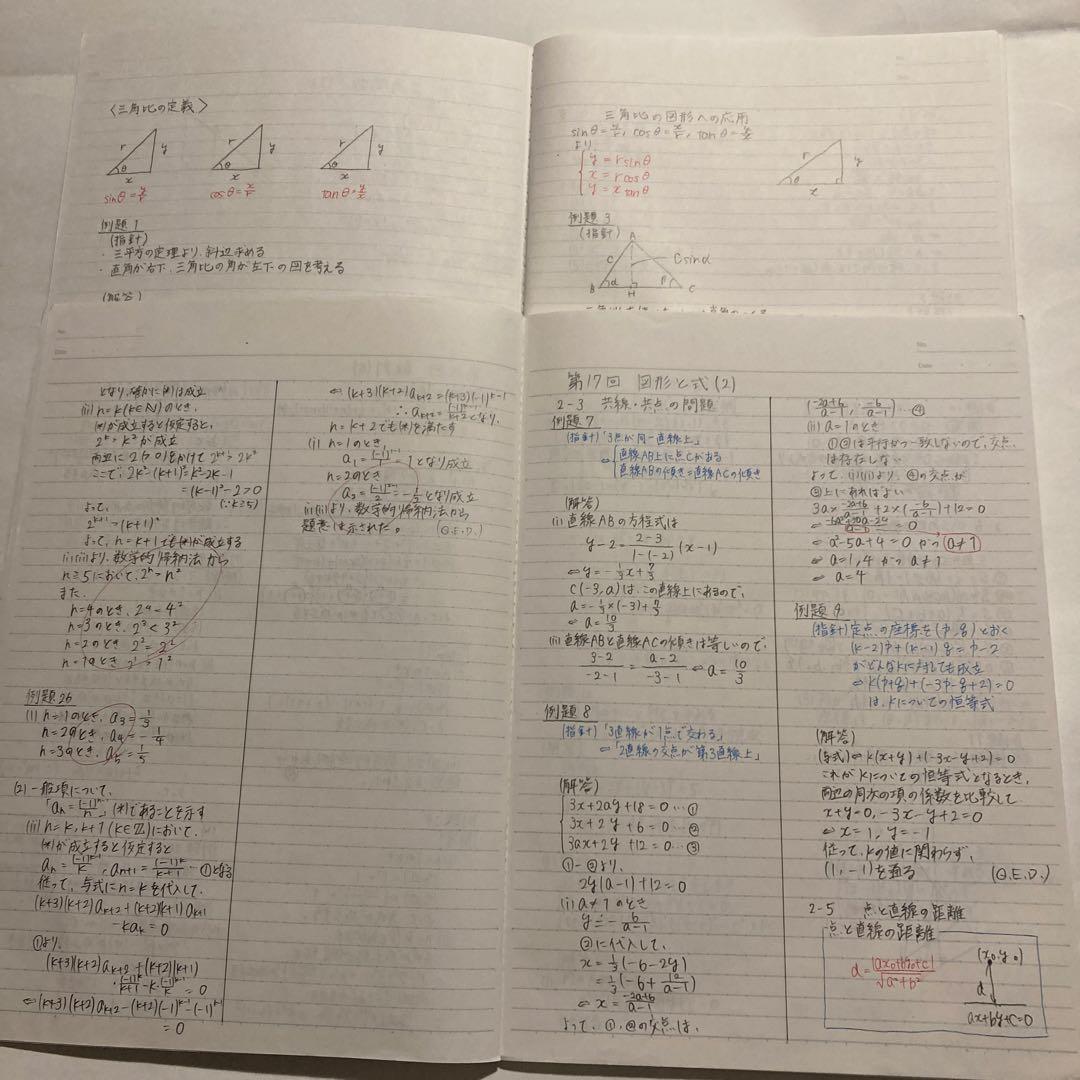 〈三角比の定義〉
r y θ x
r y θ x
r y θ x
sinθ=y/r cosθ=x/r tanθ=y/x
例題1
(指針)
・三平方の定理より、斜辺求める
・直角が右下、三角比の角が左下の図を考える
(解答)
三角比の図形への応用
sinθ=y/r, cosθ=x/r, tanθ=y/x
より
y=rsinθ
x=rcosθ
y=xtanθ
r y θ x
例題3
(指針)
A
C Csinα
B α β C
H
となり、確かに(*)は成立
(ii) n=k(k∈N)のとき、
(*)が成立すると仮定すると、
2^k>k²が成立
両辺に2をかけて2^(k+1)>2k²
ここで、2k²-(k+1)²=k²-2k-1
=(k-1)²-2>0
(∵k≧5)
よって、
2^(k+1)>(k+1)²
よって、n=k+1でも(*)が成立する
(i)(ii)より、数学的帰納法から
n≧5において、2^n>n²
また、
n=4のとき、2⁴=4²
n=3のとき、2³<3²
n=2のとき 2²=2²
n=1のとき 2¹>1²
例題26
(1) n=1のとき、a₃=1/3
n=2のとき、a₄=-1/4
n=3のとき、a₅=1/5
(2) 一般項について、
「aₙ=(-1)^(n-1)/n」(*)であることを示す
(ii) n=k, k+1(k∈Z)において、
(*)が成立すると仮定すると
aₙ=(-1)^(k-1)/k, aₙ₊₁=(-1)^k/(k+1)…①となる
従って、与式にn=kを代入して、
(k+3)(k+2)aₖ₊₂+(k+2)(k+1)aₖ₊₁
-kaₖ=0
①より、
(k+3)(k+2)aₖ₊₂+(k+2)(k+1)
・(-1)^k/(k+1)-k・(-1)^(k-1)/k=0
⇔(k+3)(k+2)aₖ₊₂-(k+2)(-1)^(k-1)-(-1)^(k-1)
=0
⇔(k+3)(k+2)aₖ₊₂=(k+3)(-1)^(k-1)
∴aₖ₊₂=(-1)^(k-1)/(k+2)となり、
n=k+2でも(*)を満たす
(i) n=1のとき、
a₁=(-1)^(1-1)/1=1となり成立
n=2のとき
a₂=(-1)^(2-1)/2=-1/2となり成立
(i)(ii)より、数学的帰納法から
題意は示された。 (Q.E.D.)
第17回 図形と式(2)
2-3 共線・共点の問題
例題7
(指針)「3点が同一直線上」
⇔ 直線AB上に点Cがある
直線ABの傾き=直線ACの傾き
(解答)
(i) 直線ABの方程式は
y-2=(2-3)/(1-(-2))(x-1)
⇔y=-1/3x+7/3
C(-3,a)は、この直線上にあるので、
a=-1/3×(-3)+7/3
⇔a=10/3
(ii) 直線ABと直線ACの傾きは等しいので、
(3-2)/(-2-1)=(a-2)/(-3-1)⇔a=10/3
例題8
(指針)「3直線が1点で交わる」
⇔「2直線の交点が第3直線上」
(解答)
3x+2ay+18=0…①
3x+2y+6=0…②
3ax+2y+12=0…③
①-②より、
2y(a-1)+12=0
(i) a≠1のとき
y=-6/(a-1)
②に代入して、
x=1/3(-6-2y)
=1/3(-6+12/(a-1))
⇔x=(-2a+6)/(a-1)
よって、①,②の交点は、
((-2a+6)/(a-1), -6/(a-1))…④
(ii) a=1のとき
①②は平行かつ一致しないので、交点
は存在しない
よって、(i)(ii)より、④の交点が
③上にあればよい
3a×(-2a+6)/(a-1)+2×(-6/(a-1))+12=0
⇔(-6a²+30a-24)/(a-1)=0
⇔a²-5a+4=0かつa≠1
⇔a=1,4かつa≠1
⇔a=4
例題9
(指針)定点の座標を(p,q)とおく
(k-2)p+(k-1)q=p-2
がどんなkに対しても成立
⇔k(p+q)+(-3p-q+2)=0
は、kについての恒等式
(解答)
(与式)⇔k(x+y)+(-3x-y+2)=0
これがkについての恒等式となるとき、
両辺の同次の項の係数を比較して
x+y=0, -3x-y+2=0
⇔x=1, y=-1
従って、kの値に関わらず、
(1,-1)を通る (Q.E.D.)
2-5 点と直線の距離
点と直線の距離
d=|ax₀+by₀+c|/√(a²+b²)
(x₀,y₀)
d
ax+by+c=0